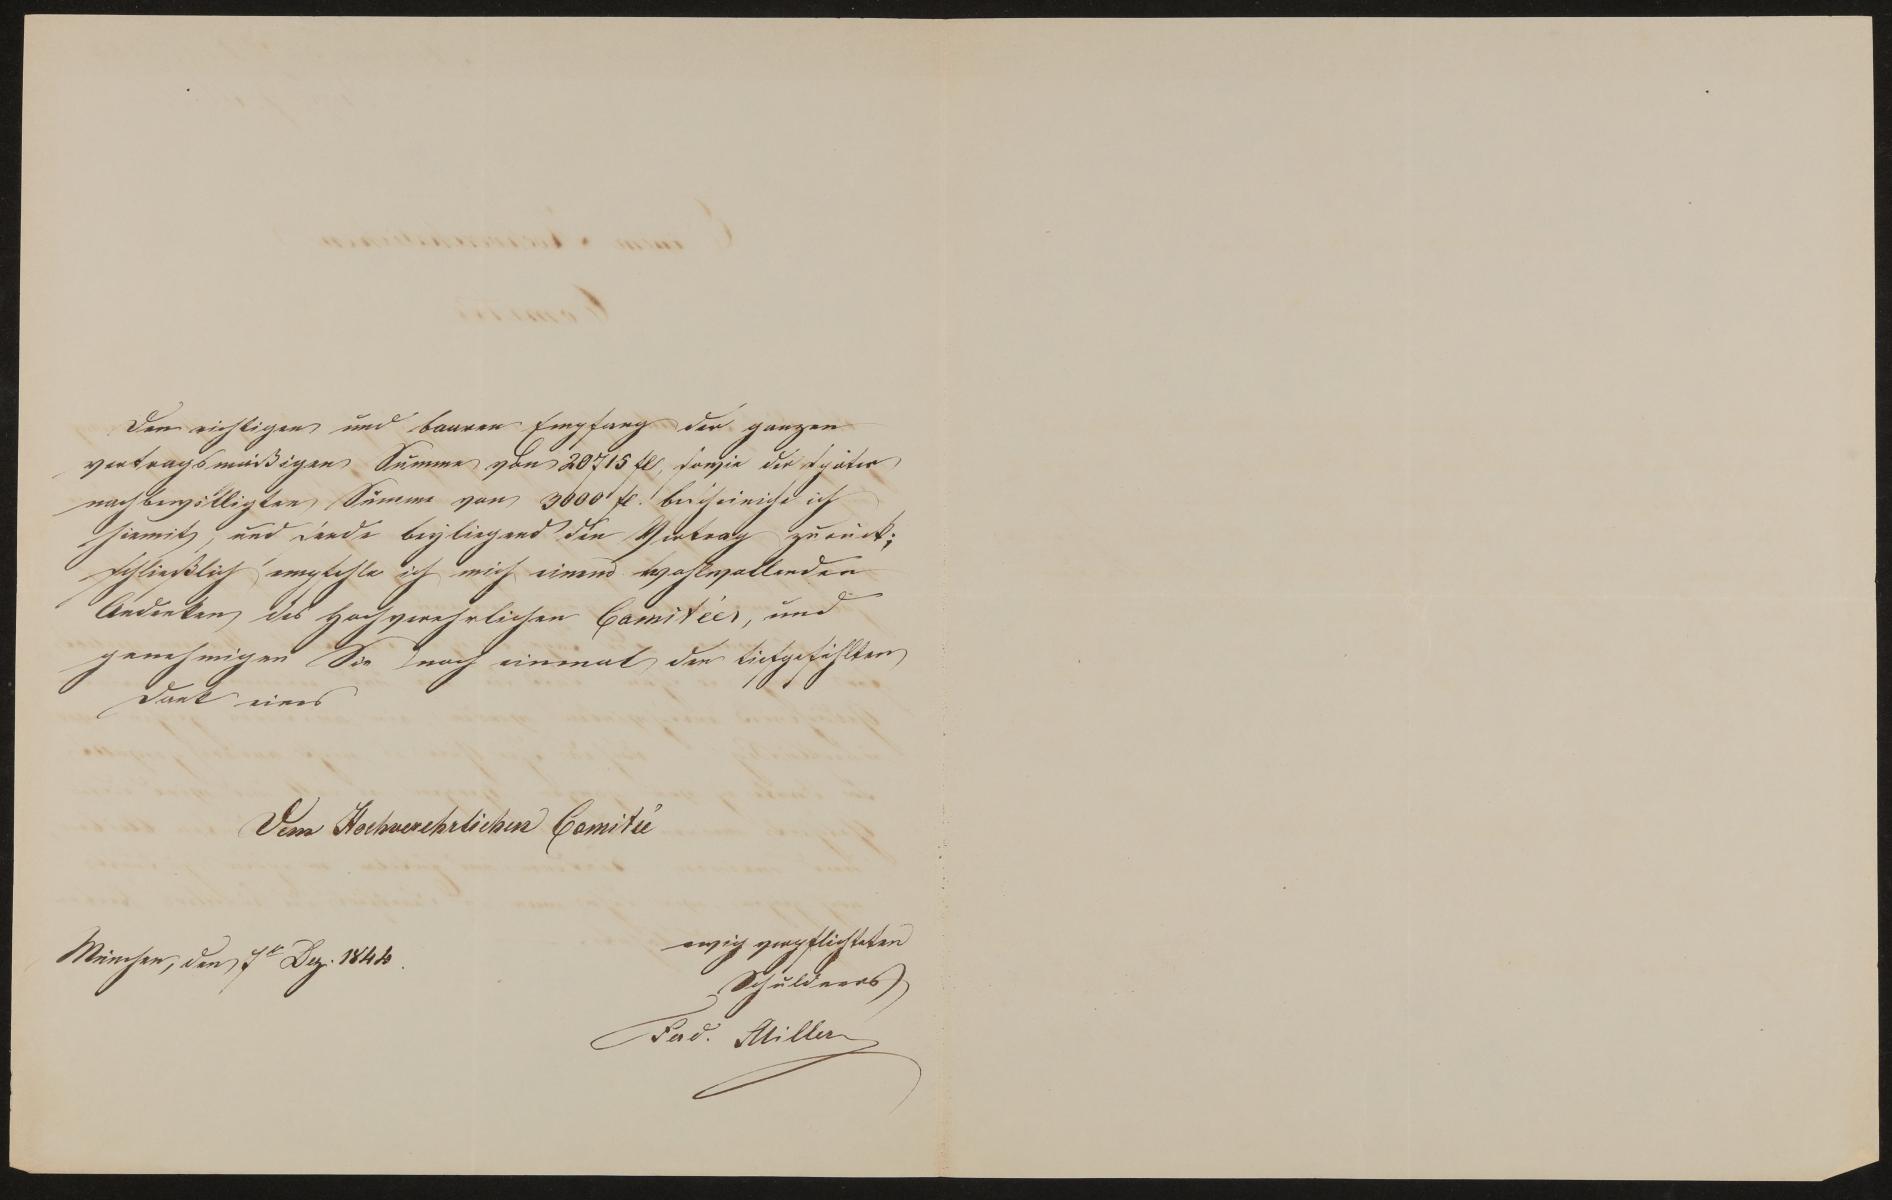 Den richtigen und baaren Empfang der ganzen
vertragsmäßigen Summe von 20715 fl, sowie der später
nachbewilligten Summe von 3000 fl. bescheinige ich
hiemit, und sende beyliegend den Vertrag zurück;
schließlich empfehle ich mich einem wohlwollenden
Andenken des Hochverehrlichen Comitées, und
genehmigen Sie noch einmal den tiefgefühlten
Dank eines
Dem Hochverehrlichen Comitée
ewig verpflichteten
München, den 7t Dez. 1844.
Schuldners
Ferd. Miller